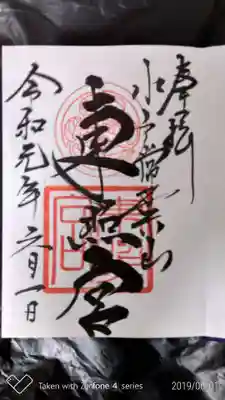 奉拝
水戸常葉山
東照宮
令和元年 六月一日
Taken with Zenfone 4 series
2019/06/01